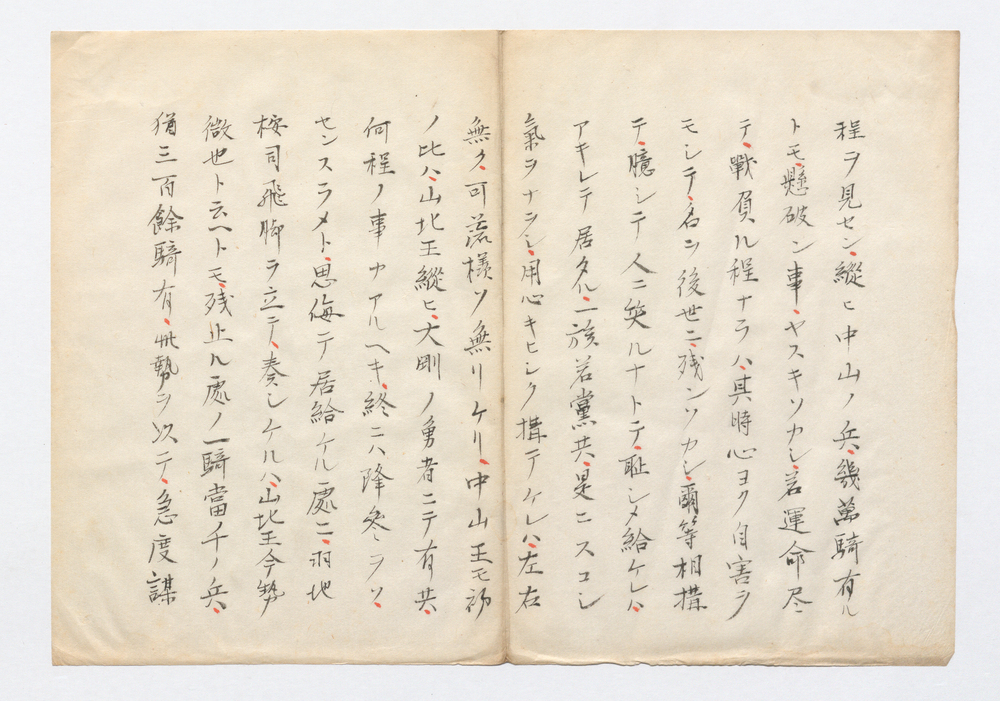 程ヲ見セン、縱ヒ中山ノ兵、幾萬騎有ル
トモ、懸破ン事、ヤスキソカシ、若運命尽
テ、戰負ル程ナラハ、其時心ヨク自害ヲ
モシテ、名ヲ後世ニ、残ンソカシ、爾等相構
テ、臆シテ人ニ笑ルナトテ、恥シメ給ケレハ、
アキレテ居タル、一族若黨共、是ニスコシ
氣ヲナヲシ、用心キヒシク構テケレハ、左右
無ク、可落樣ソ無リケリ、中山王モ初
ノ比ハ、山北王縱ヒ、大剛ノ勇者ニテ有共、
何程ノ事カアルヘキ、終ニハ降參ヲソ、
センスラメト、思侮テ居給ケル處ニ、羽地
按司飛脚ヲ立テ、奏シケルハ、山北王今勢
微也ト云ヘトモ、残止ル處ノ一騎當千ノ兵、
猶三百餘騎有、此勢ヲ以テ、急度謀